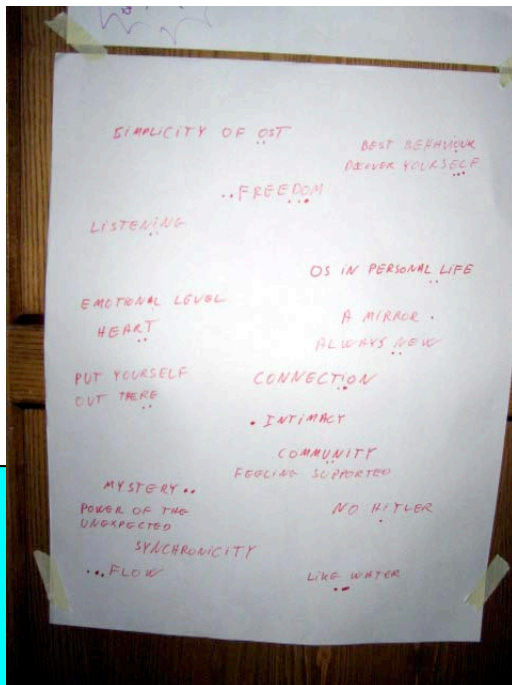 SIMPLICITY OF OST
BEST BEHAVIOUR
DISCOVER YOURSELF
FREEDOM
LISTENING
OS IN PERSONAL LIFE
EMOTIONAL LEVEL
HEART
A MIRROR
ALWAYS NEW
PUT YOURSELF
OUT THERE
CONNECTION
INTIMACY
COMMUNITY
FEELING SUPPORTED
MYSTERY
POWER OF THE
UNEXPECTED
NO HITLER
SYNCHRONICITY
FLOW
LIKE WATER